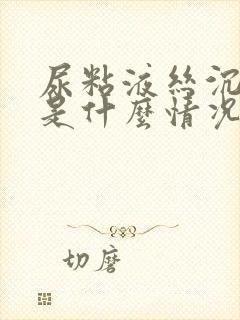 尿粘液絲沉
是什麼情況
切磨